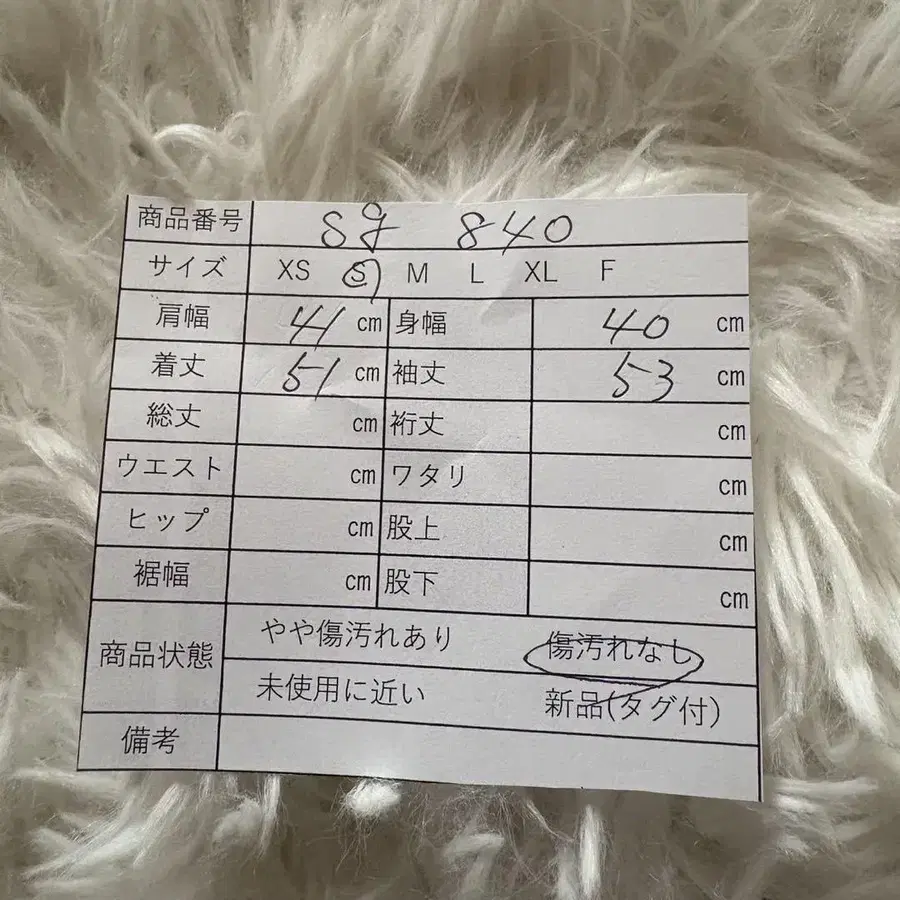 商品番号 Sg 840
サイズ XS S M L XL F
肩幅 41 cm 身幅 40 cm
着丈 51 cm 袖丈 53 cm
総丈 cm 裄丈 cm
ウエスト cm ワタリ cm
ヒップ cm 股上 cm
裾幅 cm 股下 cm
商品状態 やや傷汚れあり 傷汚れなし
未使用に近い 新品(タグ付)
備考